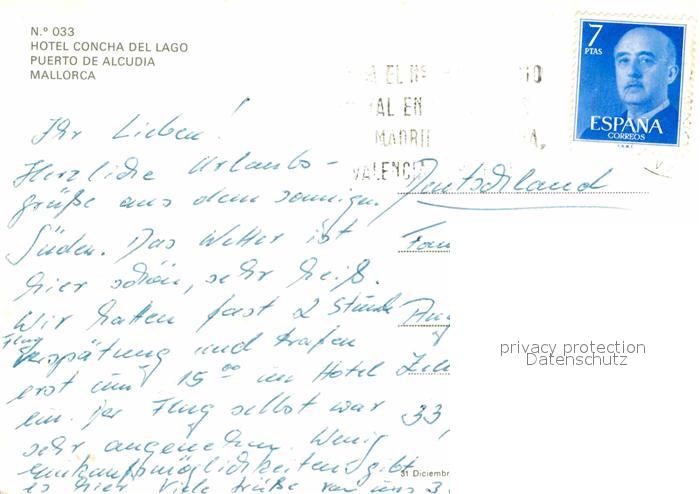 N.º 033
HOTEL CONCHA DEL LAGO
PUERTO DE ALCUDIA
MALLORCA
7
PTAS
ESPAÑA
CORREOS
A EL Nº
AL EN
MADRI
VALENC
Ihr Lieben!
Herzliche Urlaubs-
grüße aus dem sonnigen
Süden. Das Wetter ist
hier schön, sehr heiß.
Wir hatten fast 2 Stunde
Flug
verspätung und trafen
erst um 15 00 im Hotel
ein. Der Flug selbst war
sehr angenehm. Wenig
einkaufsmöglichkeiten gibt
es hier Viele Grüße von uns 3
Deutschland
Fam
33
31 Diciembr
privacy protection
Datenschutz